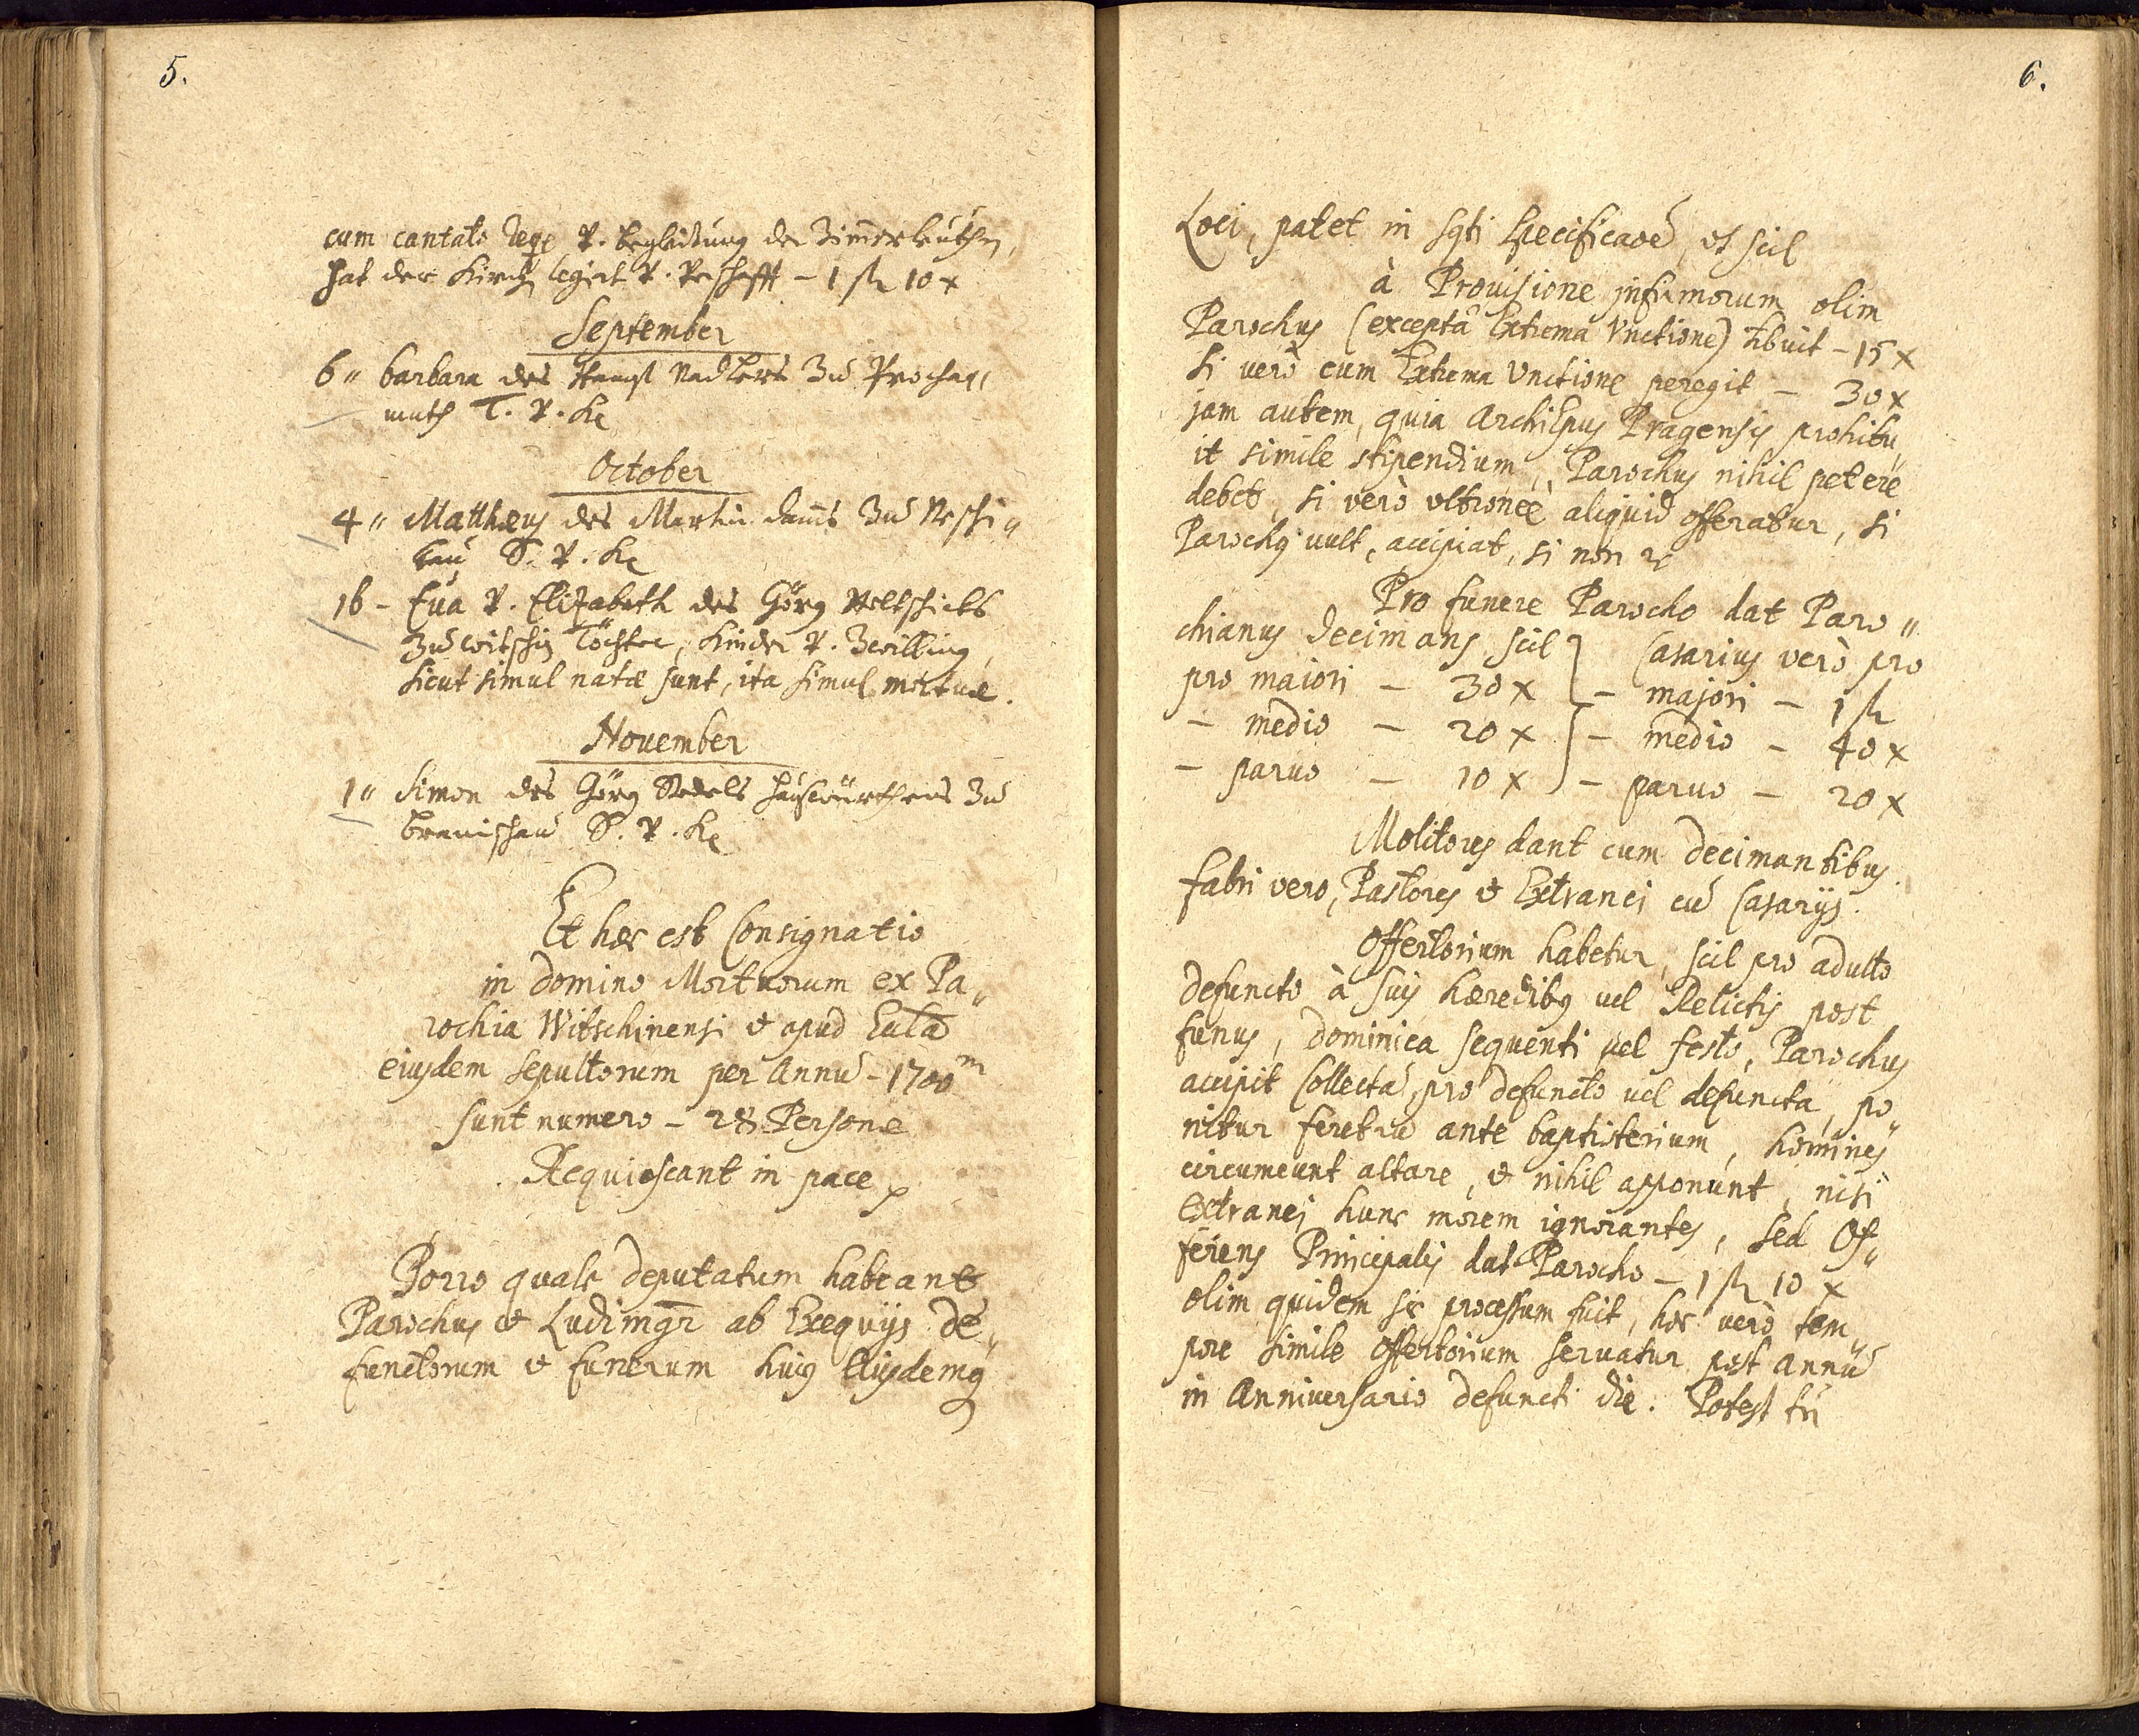 5.
cum cantato Req: v. begleitung der Zimmerleuthen,
hat der Kirch legirt v. verschafft - 1 fl 10 x
September
6 " barbara des Hansl Nadlers zu Prochau
muth T. v. K
October
4 " Matthæus des Martin zu Neschi "
kau S. v. K
16 - Eua v. Elisabeth des Görg
zu witschin Töchter, Kinder v. Zwilling,
sicut simul natæ sunt, ita simul mortuæ.
November
1 " Simon des Görg zu
branischau S. v. K
Et hæc est Consignatio
in domino Mortuorum ex Pa "
rochia Witschinensi et apud Eccla
eiusdem sepultorum per Annũ - 1700 m
sunt numero - 28 Personæ
Requiescant in pace
Porro quale deputatum habeant
Parochus et Ludimgr ab Exequijs de "
functorum et funerum huius Eiusdemq
6.
Loci, patet in sqti Specificaoe, et scil
à Prouisione infirmorum olim
Parochus (exceptâ Extrema Vnctione) hbuit - 15 x
Si verò cum Extrema Vnctione peregit - 30 x
jam autem, quia Archiepus Pragensis prohibu "
it simile stipendium, Parochus nihil petere
debet, si verò vltroneè aliquid offeratur, si
Parochus uult, accipiat, si non &c
Pro funere Parocho dat Paro "
chianus decimans scil Casarius verò pro
pro maiori - 30 x - majori - 1 fl
- medio - 20 x - medio - 40 x
- paruo - 10 x - paruo - 20 x
Molitores dant cum decimantibus.
Fabri vero, Pastores et Extranei cũ Casarijs.
Offertorium habetur, scil pro adulto
defuncto à suis hæredibus uel Relictis post
funus, dominica sequenti uel festo, Parochus
accipit Collectã pro defuncto uel defuncta, po "
nitur feretrũ ante baptisterium, homines
circumeunt altare, et nihil apponunt, nisi
extranei hunc morem ignorantes, sed Of "
ferens Principalis dat Parocho - 1 fl 10 x
olim quidem sic processum fuit, hoc verò tem "
pore simile offertorium seruatur post annũ
in Anniuersario defuncti die. Potest tñ